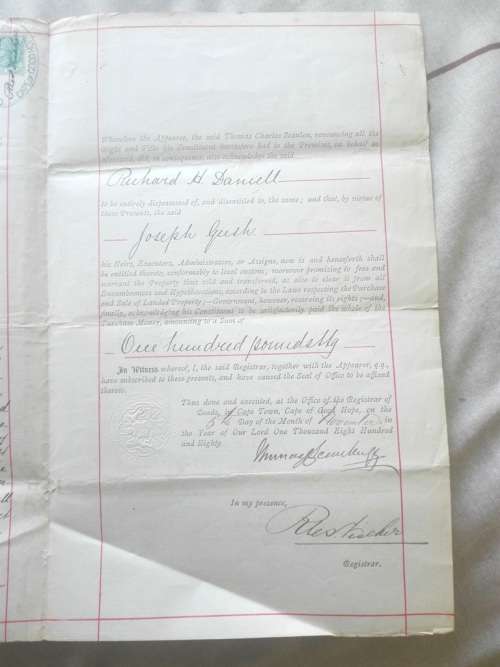 Wherefore the Appearer, the said Thomas Charles Scanlen, renouncing all the
Right and Title his Constituent heretofore had to the Premises, on behalf as
aforesaid, did, in consequence, also acknowledge the said
Richard H. Daniell
to be entirely dispossessed of, and disentitled to, the same; and that, by virtue of
these Presents, the said
Joseph Gush
his Heirs, Executors, Administrators, or Assigns, now is and henceforth shall
be entitled thereto, conformably to local custom; moreover promising to free and
warrant the Property thus sold and transferred, as also to clear it from all
Encumbrances and Hypothecations, according to the Laws respecting the Purchase
and Sale of Landed Property;—Government, however, reserving its rights;—and,
finally, acknowledging his Constituent to be satisfactorily paid the whole of the
Purchase Money, amounting to a Sum of
One hundred pounds Stg
In Witness whereof, I, the said Registrar, together with the Appearer, q.q.,
have subscribed to these presents, and have caused the Seal of Office to be affixed
thereto.
Thus done and executed, at the Office of the Registrar of
Deeds, in Cape Town, Cape of Good Hope, on the
5th Day of the Month of November in
the Year of Our Lord One Thousand Eight Hundred
and Eighty.
In my presence,
Registrar.